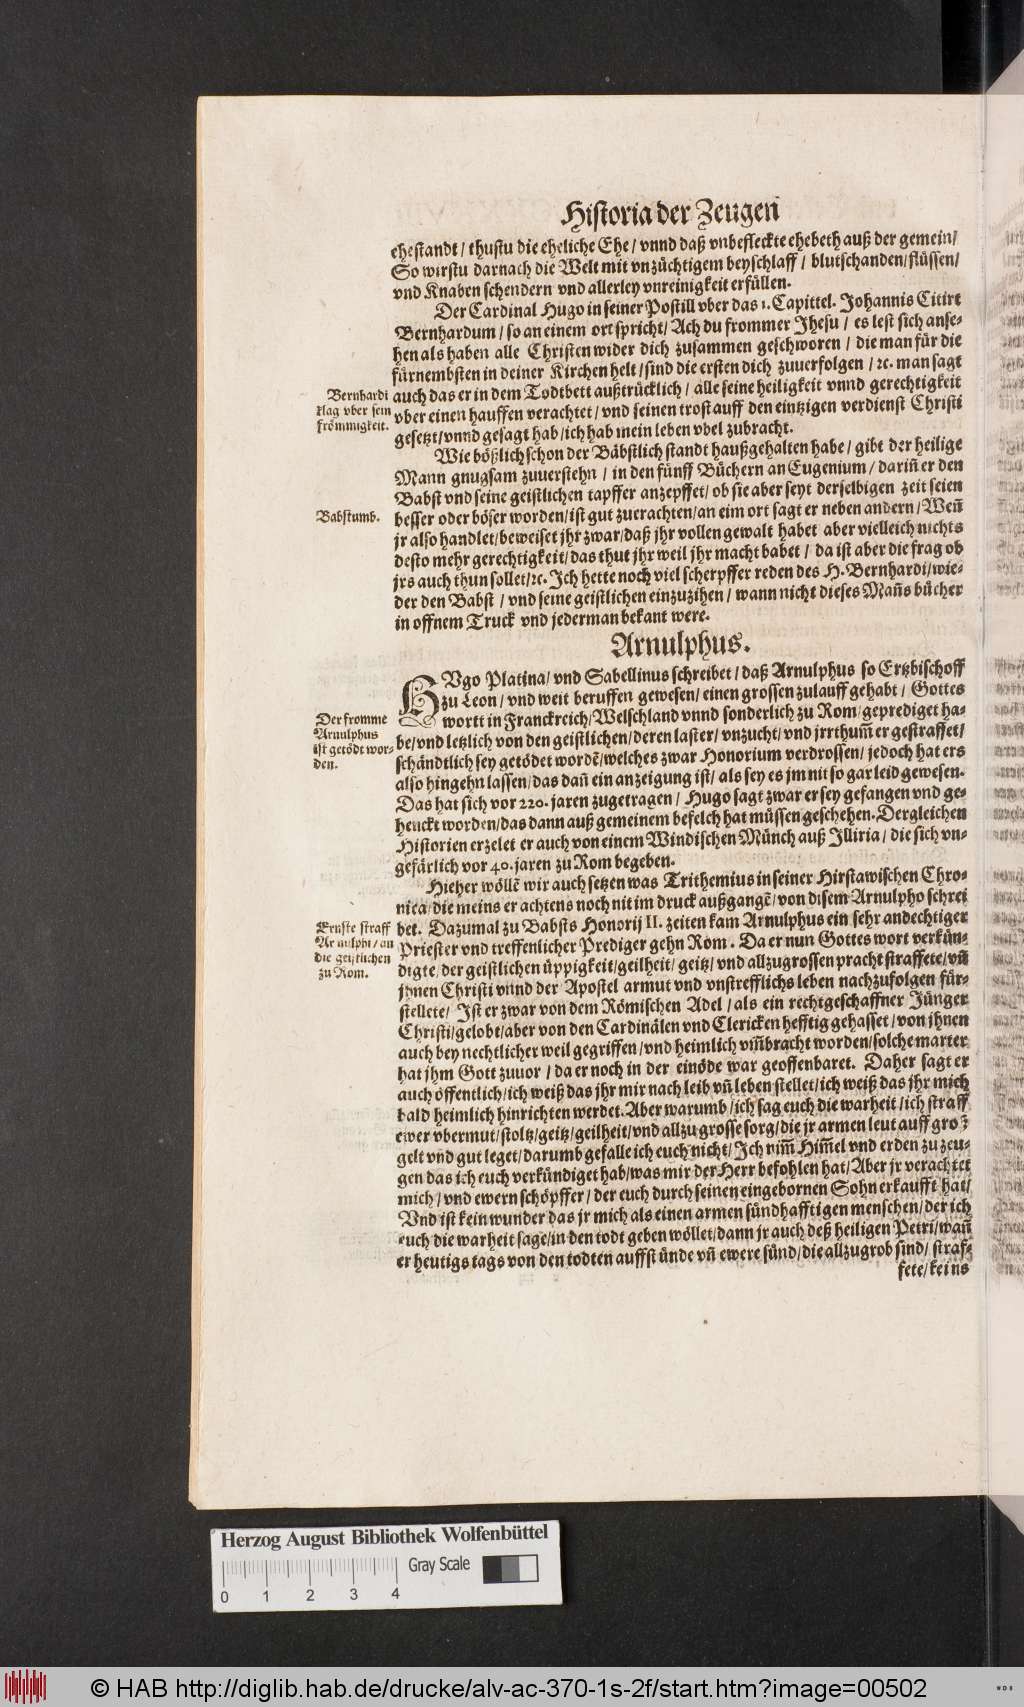 Historia der Zeugen
ehestandt / thustu die eheliche Ehe / vnnd daß vnbefleckte ehebeth auß der gemein /
So wirstu darnach die Welt mit vnzüchtigem beyschlaff / blutschanden / flüssen /
vnd Knaben schendern vnd allerley vnreinigkeit erfüllen.
Der Cardinal Hugo in seiner Postill vber das 1. Capittel. Johannis Citirt
Bernhardum / so an einem ort spricht / Ach du frommer Jhesu / es lest sich anse-
hen als haben alle Christen wider dich zusammen geschworen / die man für die
fürnembsten in deiner Kirchen helt / sind die ersten dich zuuerfolgen / ꝛc. man sagt
auch das er in dem Todtbett außtrücklich / alle seine heiligkeit vnnd gerechtigkeit
vber einen hauffen verachtet / vnd seinen trost auff den eintzigen verdienst Christi
gesetzt / vnnd gesagt hab / ich hab mein leben vbel zubracht.
Bernhardi
klag vber sein
frömmigkeit.
Wie bößlich schon der Bäbstlich standt haußgehalten habe / gibt der heilige
Mann gnugsam zuuerstehn / in den fünff Büchern an Eugenium / dariñ er den
Babst vnd seine geistlichen tapffer anzepffet / ob sie aber seyt derselbigen zeit seien
besser oder böser worden / ist gut zuerachten / an eim ort sagt er neben andern / Weñ
jr also handlet / beweiset jhr zwar / daß jhr vollen gewalt habet aber vielleich nichts
desto mehr gerechtigkeit / das thut jhr weil jhr macht habet / da ist aber die frag ob
jrs auch thun sollet / ꝛc. Ich hette noch viel scherpffer reden des H. Bernhardi / wie-
der den Babst / vnd seine geistlichen einzuzihen / wann nicht dieses Mañs bücher
in offnem Truck vnd jederman bekant were.
Babstumb.
Arnulphus.
HVgo Platina / vnd Sabellinus schreibet / daß Arnulphus so Ertzbischoff
zu Leon / vnd weit beruffen gewesen / einen grossen zulauff gehabt / Gottes
wortt in Franckreich / Welschland vnnd sonderlich zu Rom geprediget ha-
be / vnd letzlich von den geistlichen / deren laster / vnzucht / vnd jrrthum̃ er gestraffet /
schändtlich sey getödet wordẽ / welches zwar Honorium verdrossen / jedoch hat ers
also hingehn lassen / das dañ ein anzeigung ist / als sey es jm nit so gar leid gewesen.
Das hat sich vor 220. jaren zugetragen / Hugo sagt zwar er sey gefangen vnd ge-
henckt worden / das dann auß gemeinem befelch hat müssen geschehen. Dergleichen
Historien erzelet er auch von einem Windischen Münch auß Illiria / die sich vn-
gefärlich vor 40. jaren zu Rom begeben.
Der fromme
Arnulphus
ist getödt wor-
den.
Hieher wöllẽ wir auch setzen was Trithemius in seiner Hirstawischen Chro-
nica / die meins er achtens noch nit im druck außgangẽ / von disem Arnulpho schrei
bet. Dazumal zu Babsts Honorij II. zeiten kam Arnulphus ein sehr andechtiger
Priester vnd treffenlicher Prediger gehn Rom. Da er nun Gottes wort verkün-
digte / der geistlichen üppigkeit / geilheit / geitz / vnd allzugrossen pracht straffete / vñ
jhnen Christi vnnd der Apostel armut vnd vnstrefflichs leben nachzufolgen für-
stellete / Ist er zwar von dem Römischen Adel / als ein rechtgeschaffner Jünger
Christi / gelobt / aber von den Cardinälen vnd Clericken hefftig gehasset / von jhnen
auch bey nechtlicher weil gegriffen / vnd heimlich vm̃bracht worden / solche marter
hat jhm Gott zuuor / da er noch in der einöde war geoffenbaret. Daher sagt er
auch öffentlich / ich weiß das jhr mir nach leib vñ leben stellet / ich weiß das jhr mich
bald heimlich hinrichten werdet. Aber warumb / ich sag euch die warheit / ich straff
ewer vbermut / stoltz / geitz / geilheit / vnd allzu grosse sorg / die jr armen leut auff groß
gelt vnd gut leget / darumb gefalle ich euch nicht / Ich nim̃ Him̃el vnd erden zu zeu-
gen das ich euch verkündiget hab / was mir der Herr befohlen hat / Aber jr verachtet
mich / vnd ewern schöpffer / der euch durch seinen eingebornen Sohn erkaufft hat /
Vnd ist kein wunder das jr mich als einen armen sündhafftigen menschen / der ich
euch die warheit sage / in den todt geben wöllet / dann jr auch deß heiligen Petri / wañ
er heutigs tags von den todten auffstünde vñ ewere sünd / die allzugrob sind / straf-
fete / keins
Ernste straff
Arnulphi / an
die geistlichen
zu Rom.
Herzog August Bibliothek Wolfenbüttel
Gray Scale
0 1 2 3 4
© HAB http://diglib.hab.de/drucke/alv-ac-370-1s-2f/start.htm?image=00502